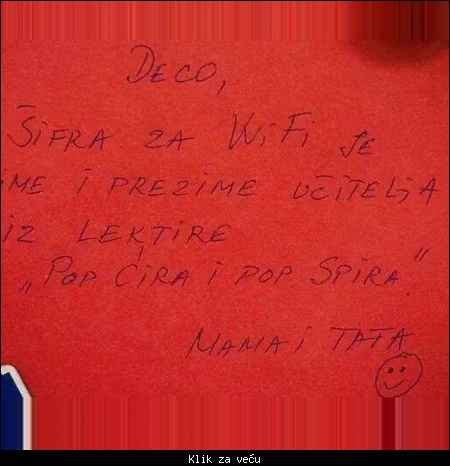 DECO,
ŠIFRA ZA WiFi JE
IME I PREZIME UČITELJA
IZ LEKTIRE
„POP ĆIRA I POP SPIRA."
MAMA I TATA
Klik za veću